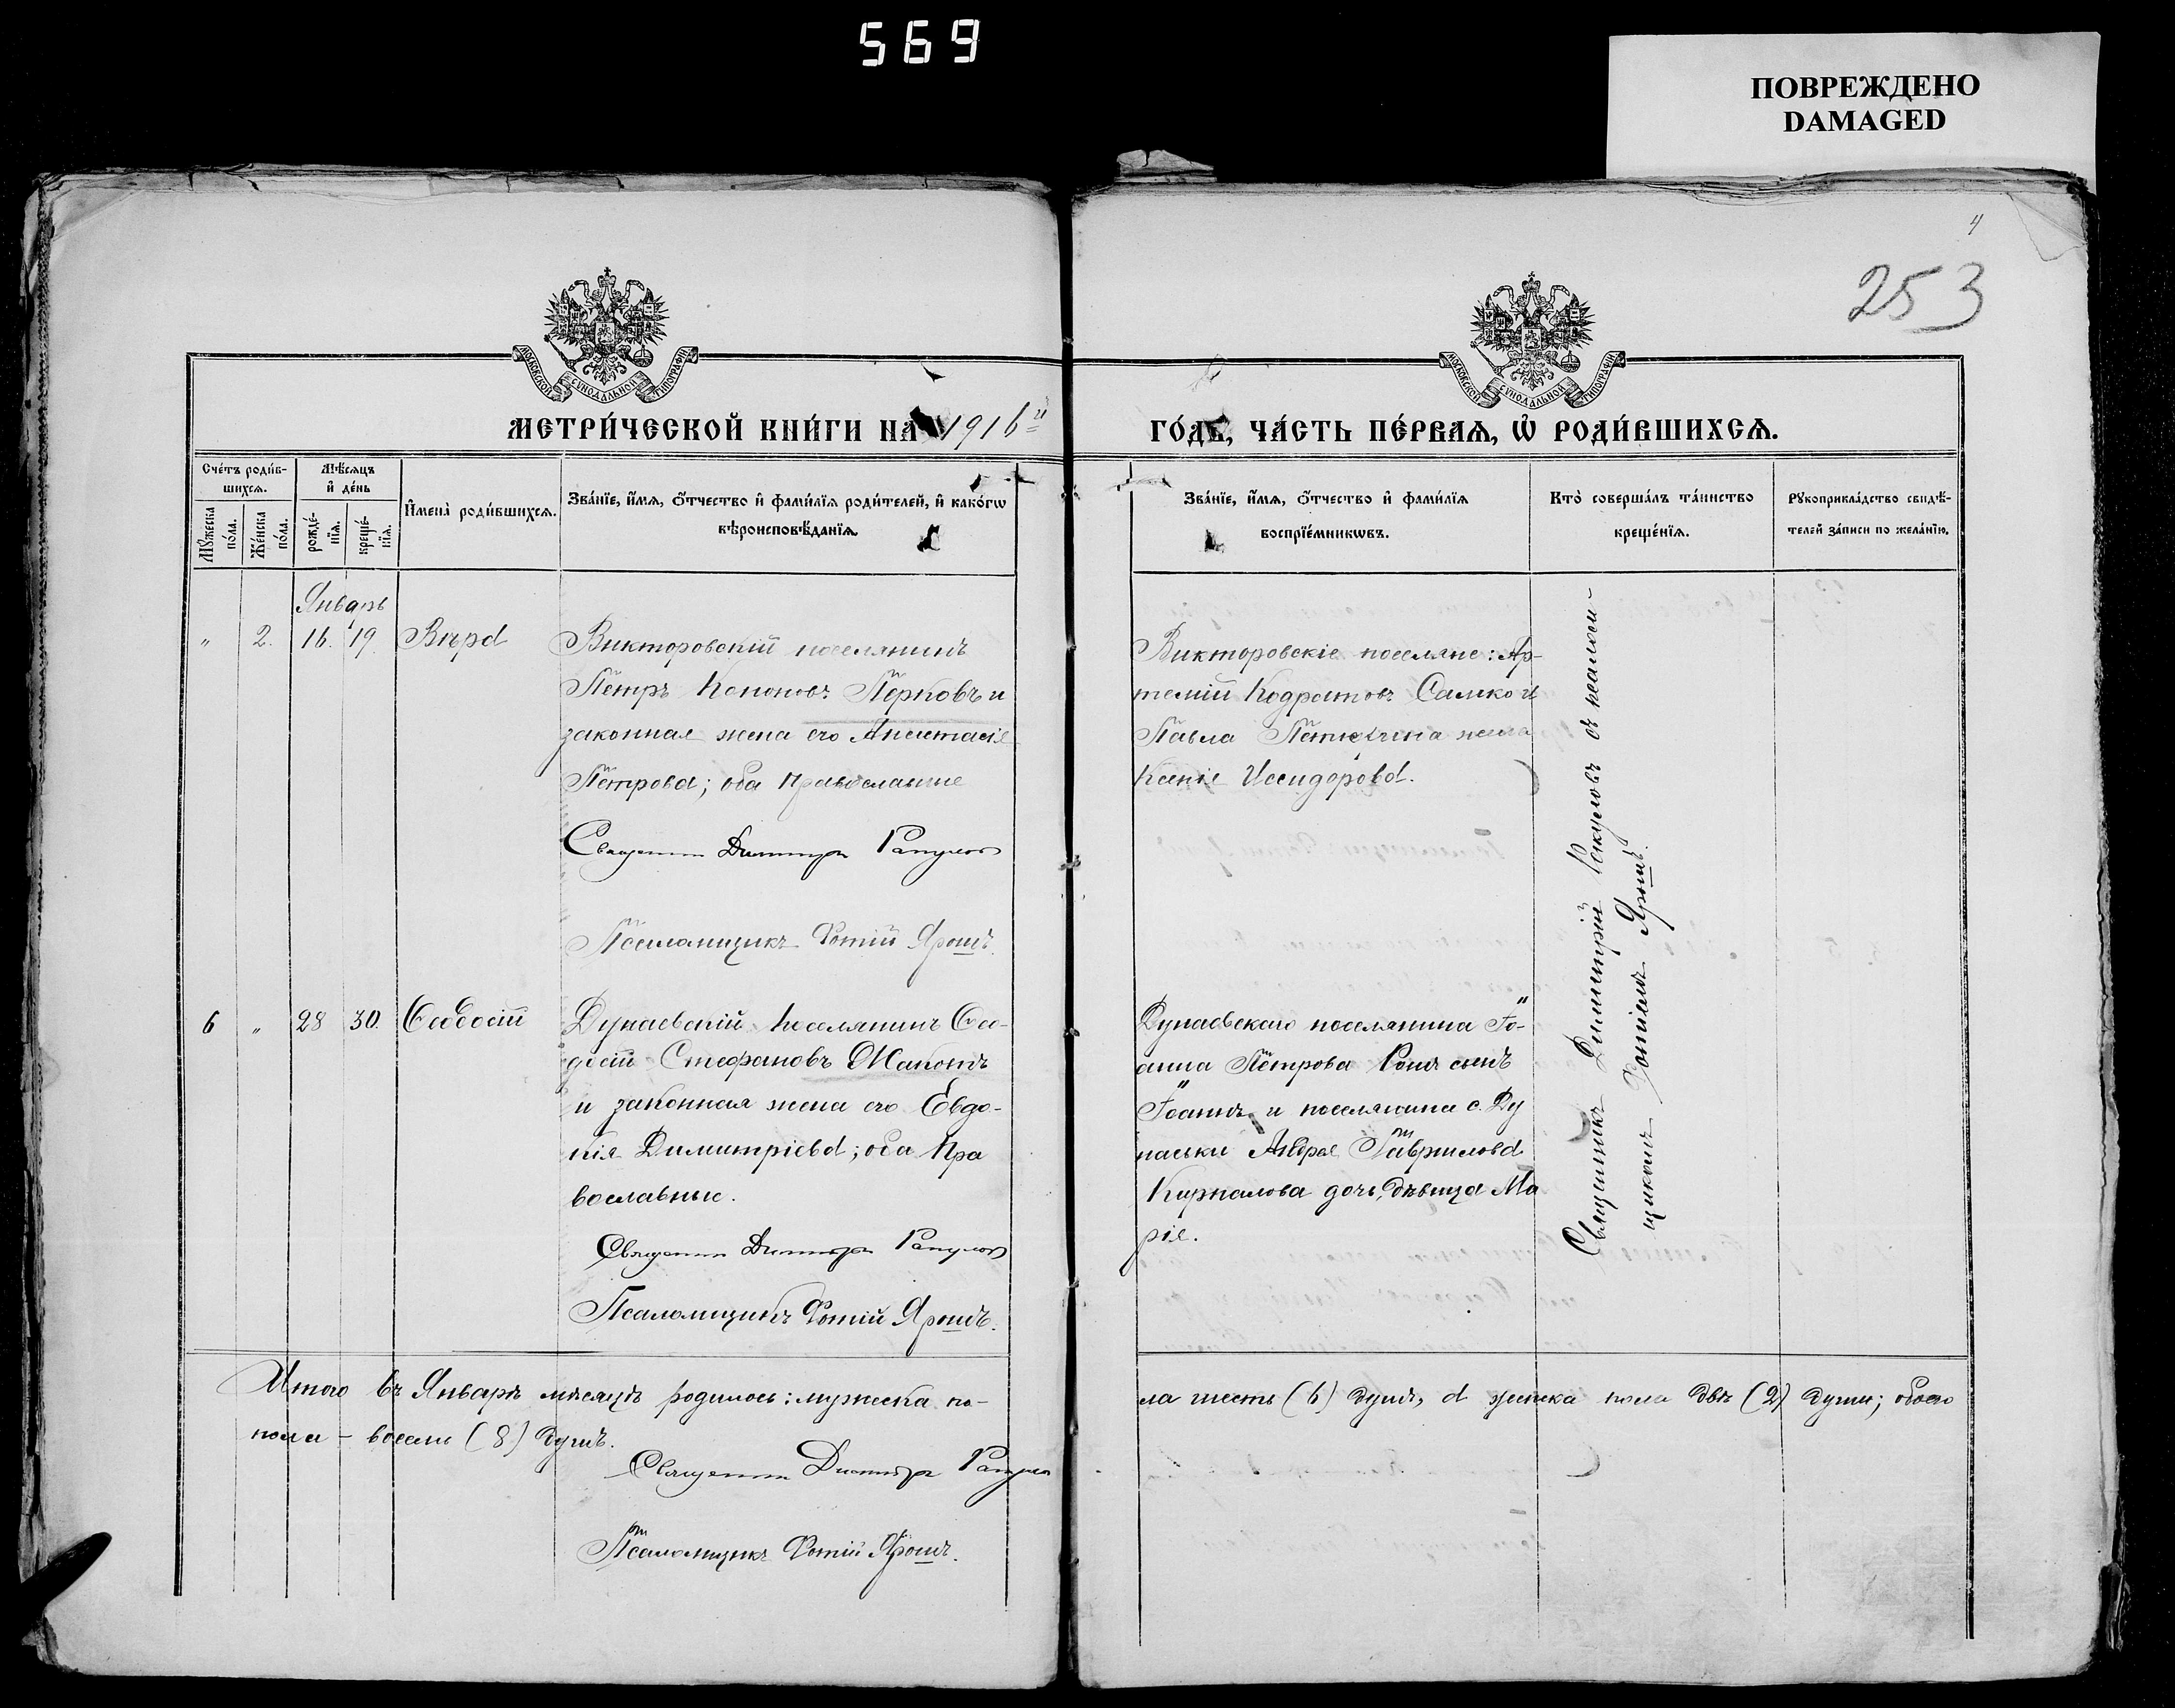 569
ПОВРЕЖДЕНО
DAMAGED
4
253
МОСКОВСКОЙ СѴНОДАЛЬНОЙ ТИПОГРАФІИ
МОСКОВСКОЙ СѴНОДАЛЬНОЙ ТИПОГРАФІИ
МЕТРИ́ЧЕСКОЙ КНИ́ГИ НА 1916й
ГО́ДЪ, ЧА́СТЬ ПЕ́РВАѦ, Ѡ҆ РОДИ́ВШИХСѦ.
Сче́тъ роди́в-
шихсѧ.
Мꙋ́жеска по́ла.
Же́нска по́ла.
Мѣ́сѧцъ
и҆ де́нь
рожде́-
нїѧ.
креще́-
нїѧ.
И҆мена̀ роди́вшихсѧ.
Зва́нїе, и҆́мѧ, ѻ҆́тчество и҆ фами́лїѧ роди́телей, и҆ како́гѡ
вѣроисповѣ́данїѧ.
Зва́нїе, и҆́мѧ, ѻ҆́тчество и҆ фами́лїѧ
воспрїе́мникѡвъ.
Кто̀ соверша́лъ та́инство
креще́нїѧ.
Рꙋкоприкла́дство свидѣ́-
телей за́писи по жела́нїю.
Январь
" 2. 16. 19. Вѣра
Викторовскій поселянинъ
Петръ Кононовъ Перковъ и
законная жена его Анастасія
Петрова; оба православные
Священникъ Димитрій Какуловъ
Псаломщикъ Фотій Ярошъ.
Викторовскіе поселяне: Ар-
темій Кодратовъ Самко и
Павла жена
Ксенія Иссидорова.
Священникъ Димитрій Какуловъ съ псалом-
щикомъ Фотіемъ Ярошъ.
6 " 28 30. Ѳеодосій
Дунаевскій поселянинъ Ѳео-
досій Стефановъ Жаконъ
и законная жена его Евдо-
кія Димитріева; оба пра
вославные.
Священникъ Димитрій Какуловъ
Псаломщикъ Фотій Ярошъ.
Дунаевскаго поселянина Іо-
анна Петрова сынъ
Іоаннъ и поселянина с. Ду
наевки Андрея Гаврилова
Кирналова дочь, дѣвица Ма
рія.
Итого въ Январѣ мѣсяцѣ родилось: мужеска по-
ла шесть (6) душъ, а женска пола двѣ (2) души; обоего
пола – восемь (8) душъ.
Священникъ Димитрій Какуловъ
Псаломщикъ Фотій Ярошъ.